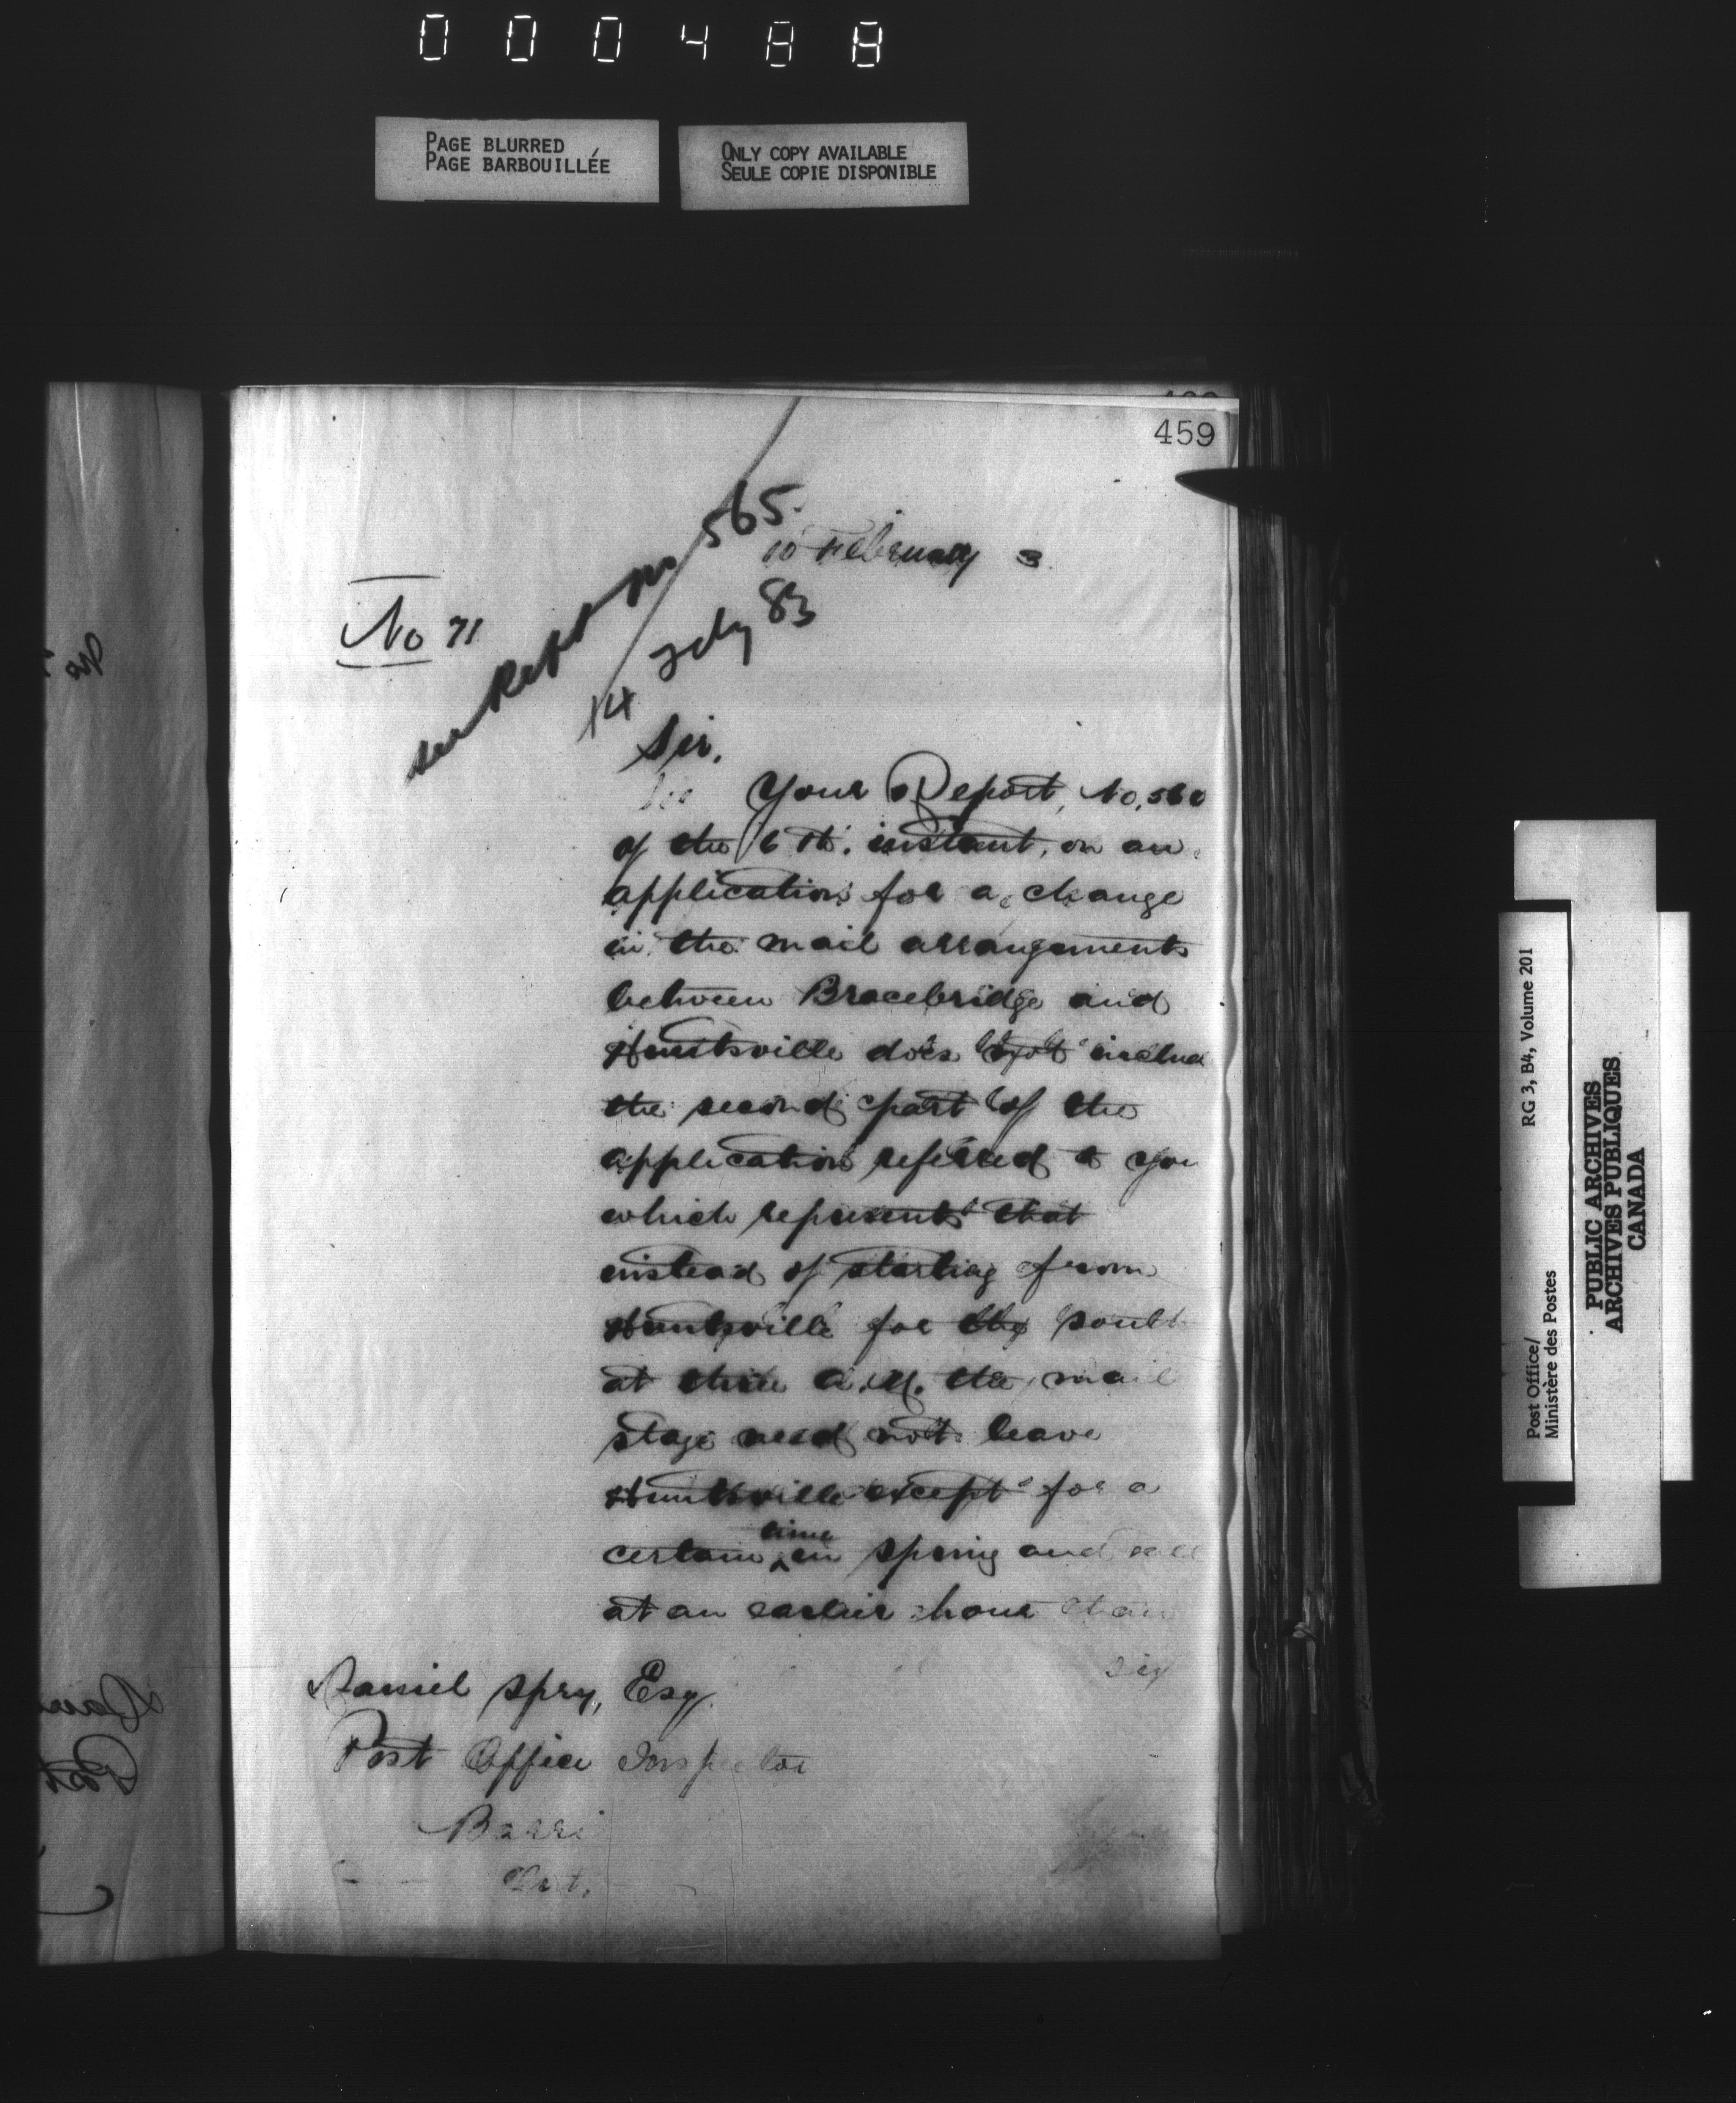 000488
PAGE BLURRED
PAGE BARBOUILLÉE
ONLY COPY AVAILABLE
SEULE COPIE DISPONIBLE
459
10 February 3
No 71
see Report no 565.
14 Feby 83
Sir,
Your Report, No. 560
of the 6th. instant, on an
application for a change
in the mail arrangements
between Bracebridge and
Huntsville does not includ
the second part of the
application referred to you
which represents that
instead of starting from
Huntsville for the south
at three A.M. the mail
stage need not leave
Huntsville except for a
certain time in spring and fall
at an earlier hour than
six
Daniel Spry, Esq.
Post Office Inspector
Barri
Ont.
RG 3, B4, Volume 201
Post Office/
Ministère des Postes
PUBLIC ARCHIVES
ARCHIVES PUBLIQUES
CANADA